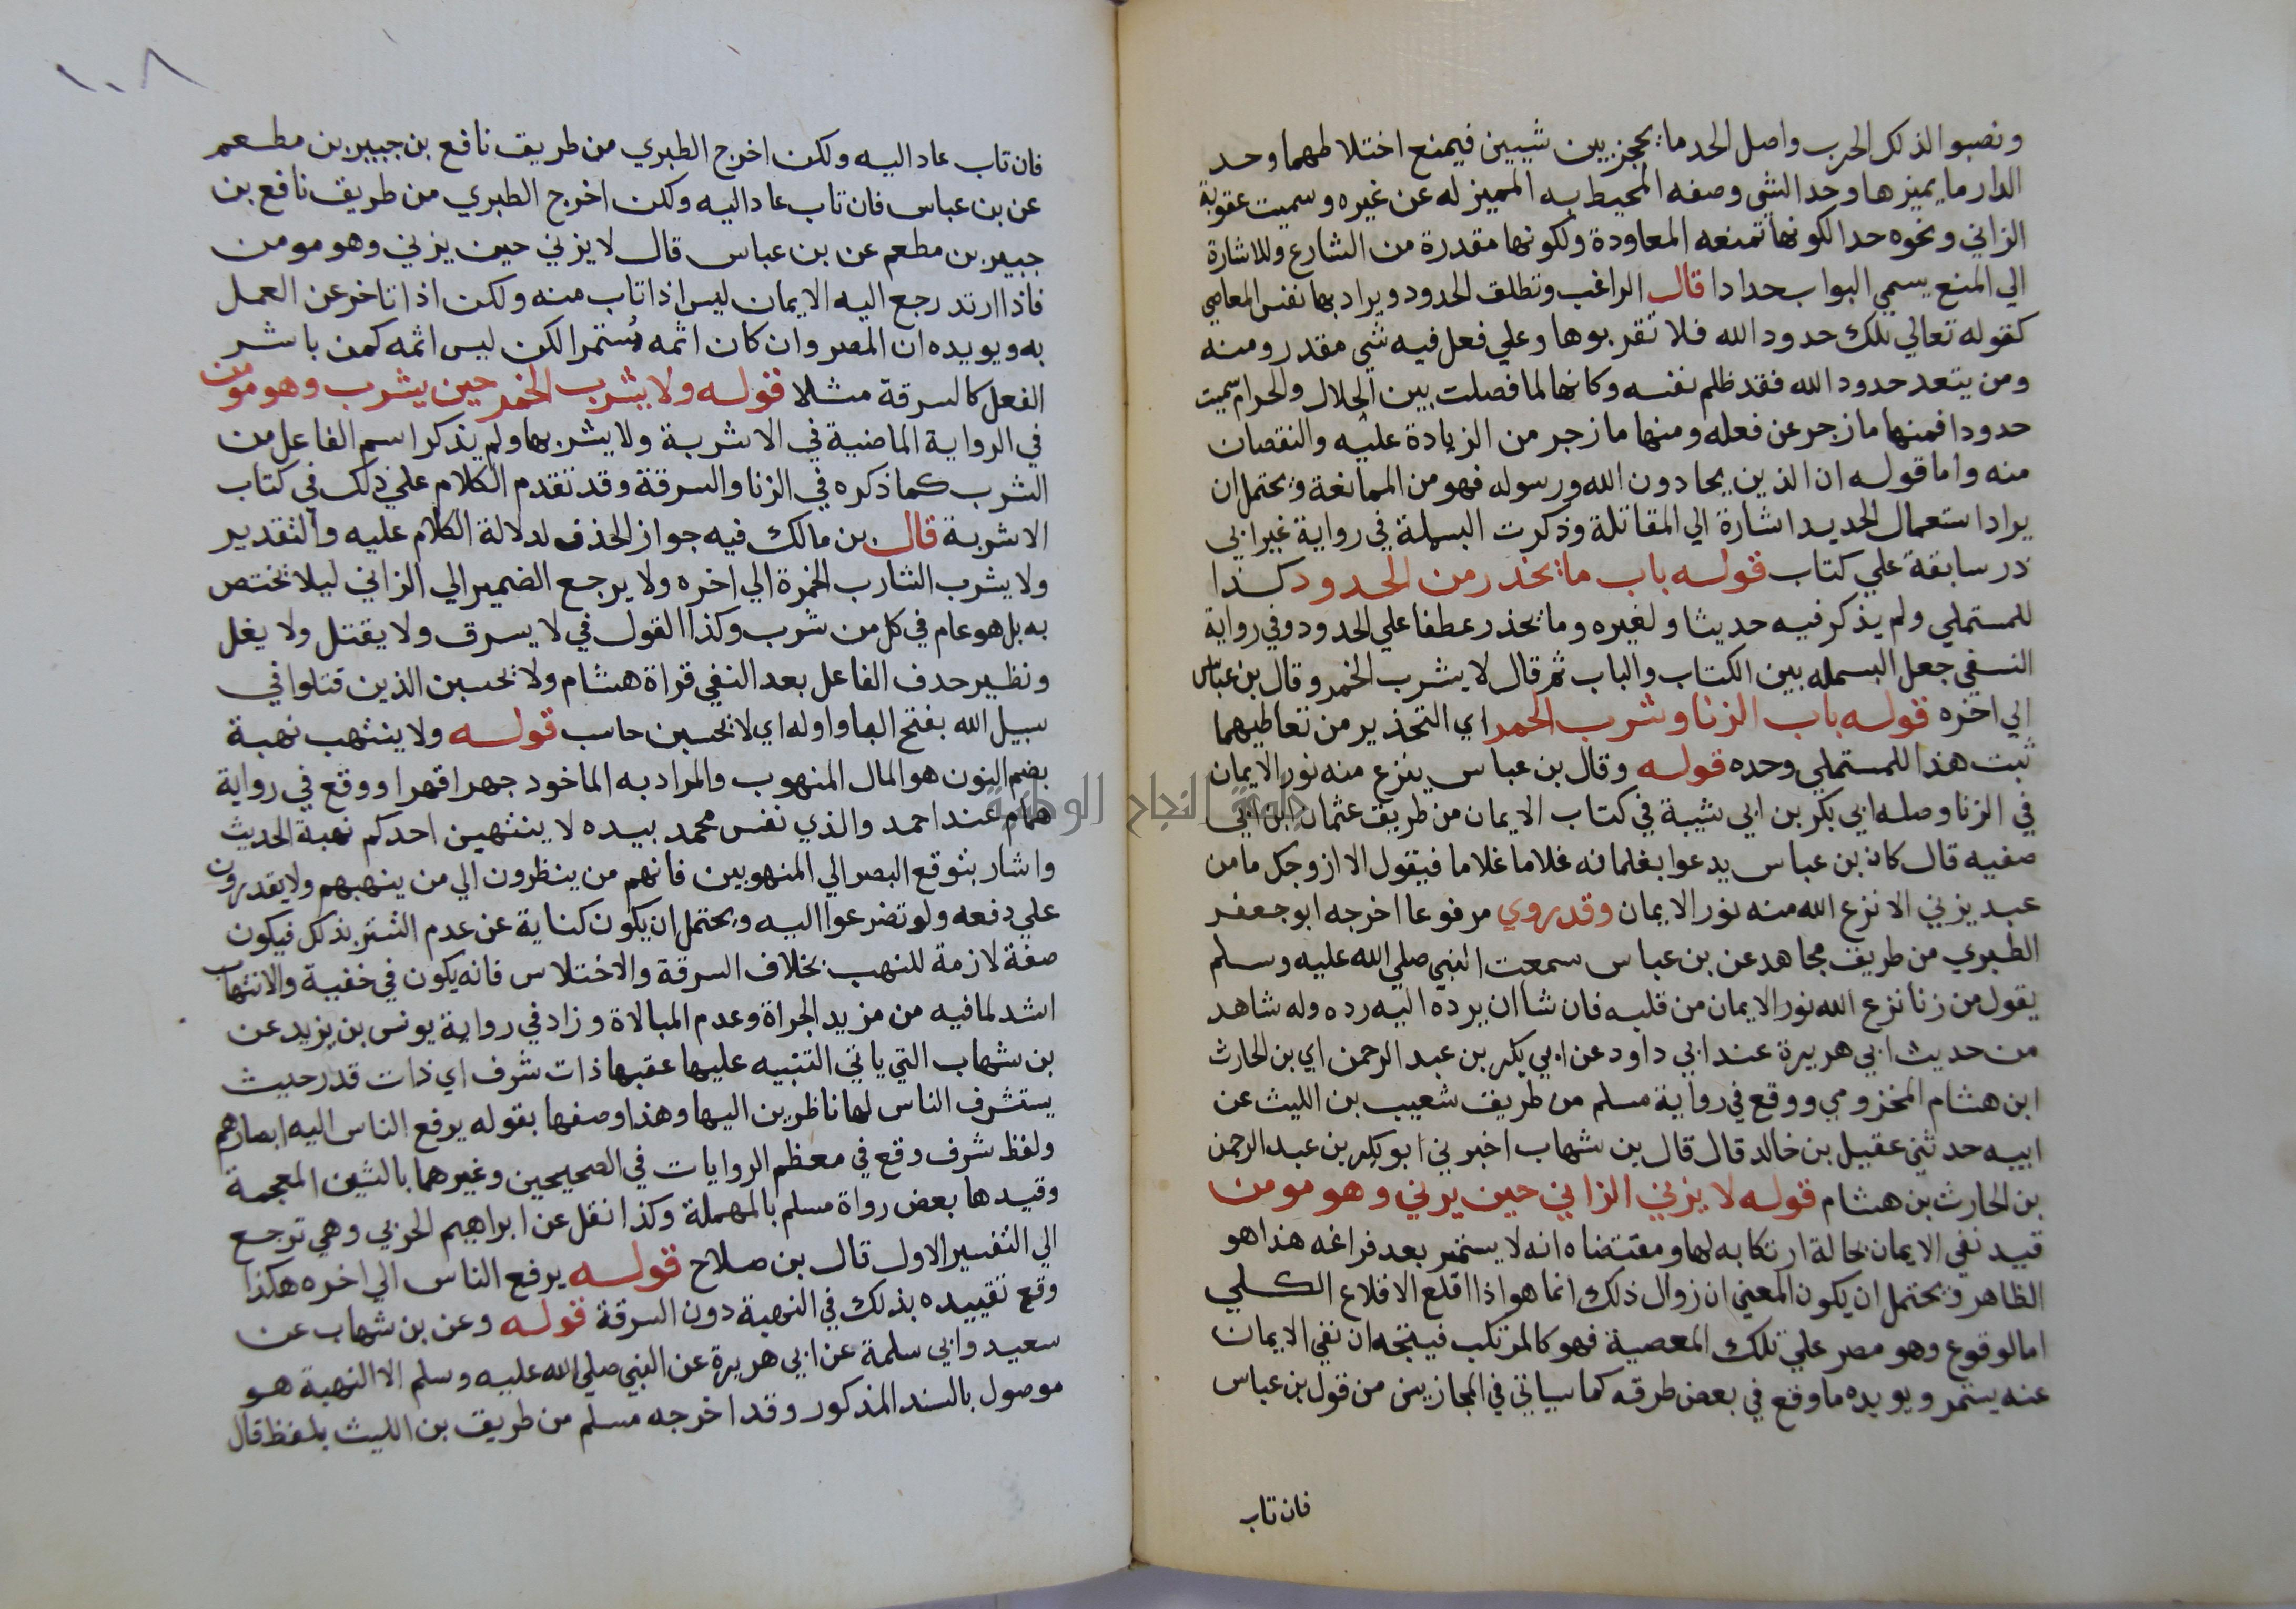 ونصبوا لذلك الحرب واصل الحد ما يحجز بين شيين فيمنع اختلاطهما وحد
الدار ما يميزها وحد الشي وصفه المحيط به المميز له عن غيره وسميت عقوبة
الزاني ونحوه حدا لكونها تمنعه المعاودة ولكونها مقدرة من الشارع وللاشارة
الي المنع يسمي البواب حدادا قال الراغب وتطلق الحدود ويراد بها نفس المعاصي
كقوله تعالي تلك حدود الله فلا تقربوها وعلي فعل فيه شي مقدر ومنه
ومن يتعد حدود الله فقد ظلم نفسه وكانها لما فصلت بين الحلال والحرام سميت
حدودا فمنها ما زجر عن فعله ومنها ما زجر من الزيادة عليه والنقصان
منه واما قوله ان الذين يحادون الله ورسوله فهو من الممانعة ويحتمل ان
يراد استعمال الحديد اشارة الي المقاتلة وذكرت البسملة في رواية غير ابي
ذر سابقة علي كتاب قوله باب ما يحذر من الحدود كذا
للمستملي ولم يذكر فيه حديثا ولغيره وما يحذر عطفا علي الحدود وفي رواية
النسفي جعل البسمله بين الكتاب والباب ثم قال لا يشرب الخمر وقال بن عباس
الي اخره قوله باب الزنا وشرب الخمر اي التحذير من تعاطيهما
ثبت هذا للمستملي وحده قوله وقال بن عباس ينزع منه نور الايمان
في الزنا وصله ابي بكر بن ابي شيبة في كتاب الايمان من طريق عثمان ابن ابي
صفيه قال كان بن عباس يدعوا بغلمانه غلاما غلاما فيقول الا ازوجك ما من
عبد يزني الا نزع الله منه نور الايمان وقد روي مرفوعا اخرجه ابو جعفر
الطبري من طريق مجاهد عن بن عباس سمعت النبي صلي الله عليه وسلم
يقول من زنا نزع الله نور الايمان من قلبه فان شا ان يرده اليه رده وله شاهد
من حديث ابي هريرة عند ابي داود عن ابي بكر بن عبد الرحمن اي بن الحارث
ابن هشام المخزومي ووقع في رواية مسلم من طريق شعيب بن الليث عن
ابيه حدثني عقيل بن خالد قال قال بن شهاب اخبرني ابو بكر بن عبد الرحمن
بن الحارث بن هشام قوله لا يزني الزاني حين يزني وهو مومن
قيد نفي الايمان بحالة ارتكابه لها ومقتضاه انه لا يستمر بعد فراغه هذا هو
الظاهر ويحتمل ان يكون المعني ان زوال ذلك انما هو اذا اقلع الاقلاع الكلي
اما لوقوع وهو مصر علي تلك المعصية فهو كالمرتكب فيتجه ان نفي الايمان
عنه يستمر ويويده ما وقع في بعض طرقه كما سياتي في المجازيين من قول بن عباس
فان تاب
١٠٨
فان تاب عاد اليه ولكن اخرج الطبري من طريق نافع بن جبير بن مطعم
عن بن عباس فان تاب عاد اليه ولكن اخرج الطبري من طريق نافع بن
جبير بن مطعم عن بن عباس قال لا يزني حين يزني وهو مومن
فاذا ارتد رجع اليه الايمان ليس اذا تاب منه ولكن اذا تاخر عن العمل
به ويويده ان المصر وان كان اثمه مستمرا لكن ليس اثمه كمن باشر
الفعل كالسرقة مثلا قوله ولا يشرب الخمر حين يشرب وهو مومن
في الرواية الماضية في الاشربة ولا يشربها ولم يذكر اسم الفاعل من
الشرب كما ذكره في الزنا والسرقة وقد تقدم الكلام علي ذلك في كتاب
الاشربة قال بن مالك فيه جواز الحذف لدلالة الكلام عليه والتقدير
ولا يشرب الشارب الخمرة الي اخره ولا يرجع الضمير الي الزاني ليلا يختص
به بل هو عام في كل من شرب وكذا القول في لا يسرق ولا يقتل ولا يغل
ونظير حدف الفاعل بعد النفي قراة هشام ولا تحسبن الذين قتلوا في
سبيل الله بفتح اليا واوله اي لا يحسبن حاسب قوله ولا ينتهب نهبة
بضم النون هو المال المنهوب والمراد به الماخود جهرا قهرا ووقع في رواية
همام عند احمد والذي نفس محمد بيده لا ينتهبن احدكم نهبة الحديث
واشار بتوقع البصر الي المنهوبين فانهم من ينظرون الي من ينهبهم ولا يقدرون
علي دفعه ولو تضرعوا اليه ويحتمل ان يكون كناية عن عدم التستر بذلك فيكون
صفة لازمة للنهب بخلاف السرقة والاختلاس فانه يكون في خفية والانتهاب
اشد لما فيه من مزيد الجراة وعدم المبالاة وزاد في رواية يونس بن يزيد عن
بن شهاب التي ياتي التنبيه عليها عقبها ذات شرف اي ذات قدر حيث
يستشرف الناس لها ناظرين اليها وهذا وصفها بقوله يرفع الناس اليه ابصارهم
ولفظ شرف وقع في معظم الروايات في الصحيحين وغيرهما بالشين المعجمة
وقيدها بعض رواة مسلم بالمهملة وكذا نقل عن ابراهيم الحربي وهي ترجع
الي التفسير الاول قال بن صلاح قوله يرفع الناس الي اخره هكذا
وقع تقييده بذلك في النهبة دون السرقة قوله وعن بن شهاب عن
سعيد وابي سلمة عن ابي هريرة عن النبي صلي الله عليه وسلم الا النهبة هو
موصول بالسند المذكور وقد اخرجه مسلم من طريق بن الليث بلفظ قال
جامعة النجاح الوطنية